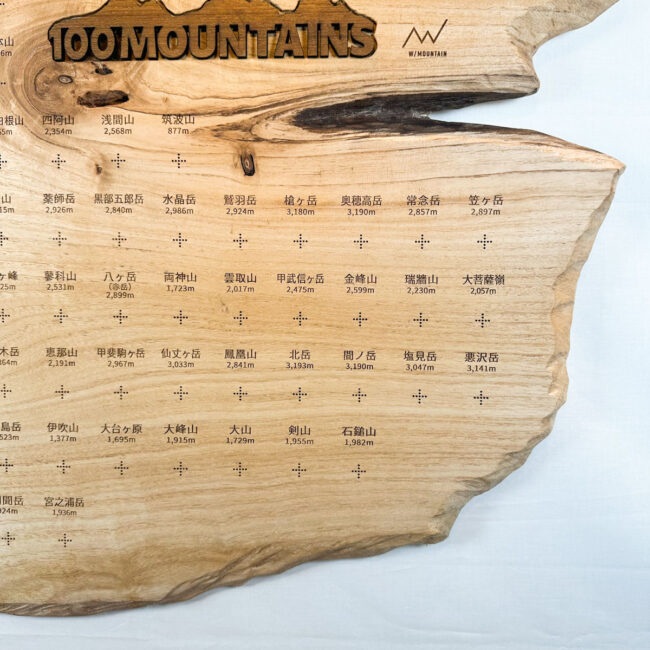 100MOUNTAINS
W/MOUNTAIN
四阿山 浅間山 筑波山
2,354m 2,568m 877m
薬師岳 黒部五郎岳 水晶岳 鷲羽岳 槍ヶ岳 奥穂高岳 常念岳 笠ヶ岳
2,926m 2,840m 2,986m 2,924m 3,180m 3,190m 2,857m 2,897m
蓼科山 八ヶ岳 両神山 雲取山 甲武信ヶ岳 金峰山 瑞牆山 大菩薩嶺
2,531m (赤岳) 1,723m 2,017m 2,475m 2,599m 2,230m 2,057m
2,899m
恵那山 甲斐駒ヶ岳 仙丈ヶ岳 鳳凰山 北岳 間ノ岳 塩見岳 悪沢岳
2,191m 2,967m 3,033m 2,841m 3,193m 3,190m 3,047m 3,141m
伊吹山 大台ヶ原 大峰山 大山 剣山 石鎚山
1,377m 1,695m 1,915m 1,729m 1,955m 1,982m
宮之浦岳
1,936m